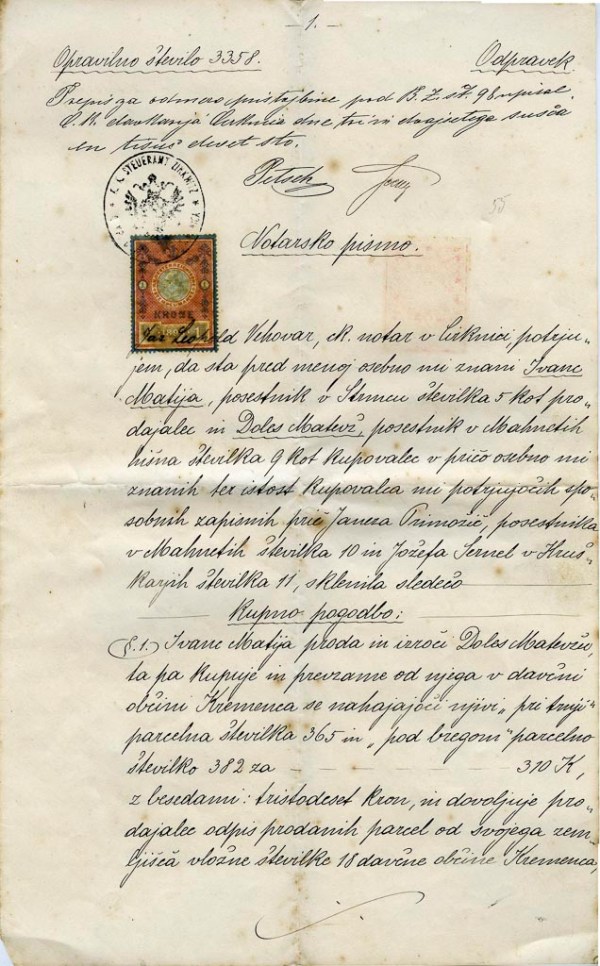 — 1. —
Opravilno število 3358. Odpravek
Prepis za odmero pristojbine pod B. Z. št. 98 vpisal.
C. k. davkarija Cirknica dne, tri in dvajsetega sušca
en tisoč devet sto.
Petsch
K. K. STEUERAMT ZIRKNITZ
Notarsko pismo.
KRONE
1 KRONE 1
Leopold Vehovar, ck. notar v Cirknici, potrju„
jem, da sta pred menoj osebno mi znani Ivanc
Matija, posestnik v Strmcu številka 5 kot pro„
dajalec in Doles Matevž, posestnik v Mahnetih
hišna številka 9 kot kupovalec v pričo osebno mi
znanih ter istost kupovalca mi potrjujočih spo„
sobnih zapisnih prič Janeza Primožič, posestnika
v Mahnetih številka 10 in Jožefa Sernel v Kruš„
karjih številka 11, sklenila sledečo
Kupno pogodbo:
§.1.) Ivanc Matija proda in izroči Doles Matevžu,
ta pa kupuje in prevzame od njega v davčni
občini Kremenca se nahajajoči njivi „pri
parcelna številka 365 in „pod bregom" parcelno
številko 382 za — — — 310 K,
z besedami: tristodeset kron, in dovoljuje pro„
dajalec odpis prodanih parcel od svojega zem„
ljišča vložne številke 18 davčne občine Kremenca,